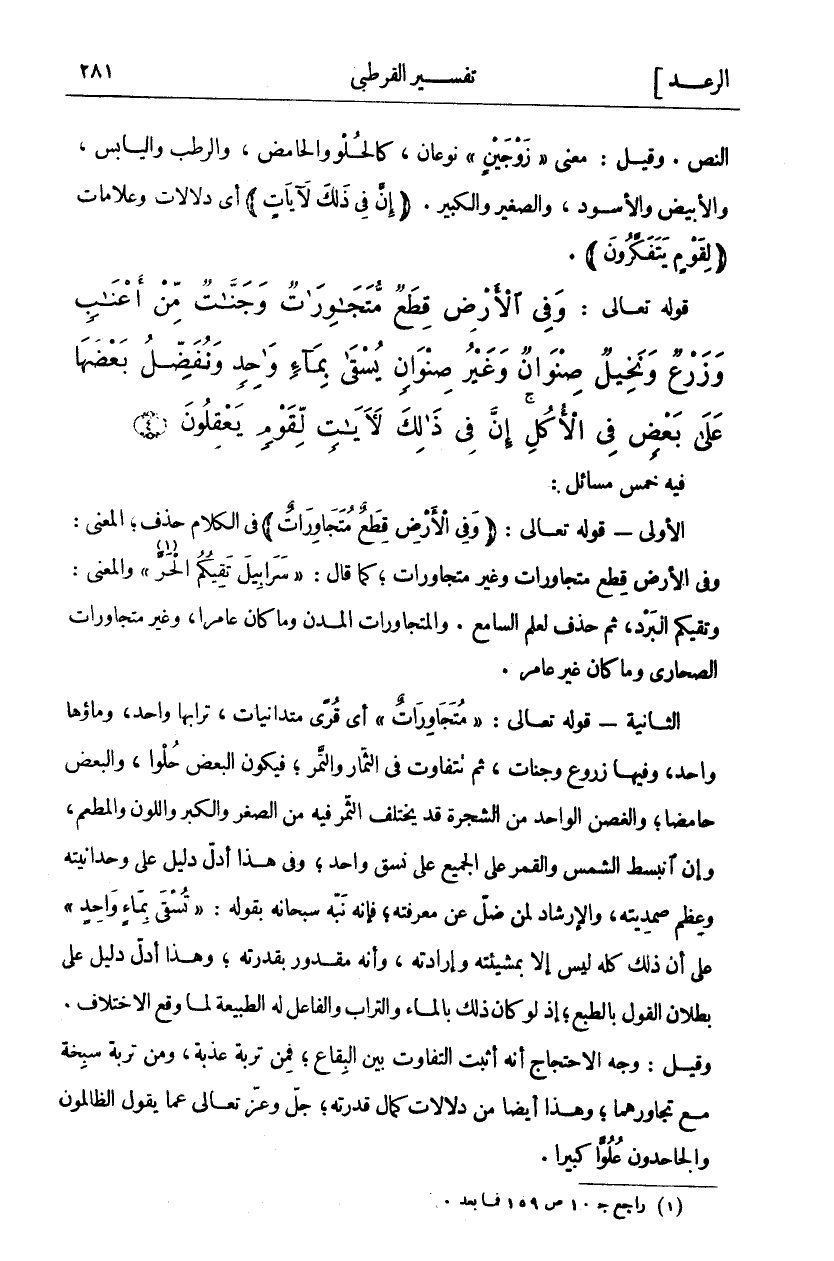 الرعـد] تفسـير القرطبى ٢٨١
النص . وقيـل : معنى « زَوْجَيْنِ » نوعان ، كالحُلْو والحامض ، والرطب واليـابس ،
والأبيض والأسـود ، والصغير والكبير . ﴿ إِنَّ فِى ذَلِكَ لَآيَاتٍ ﴾ أى دلالات وعلامات
﴿ لِقَوْمٍ يَتَفَكَّرُونَ ﴾ .
قوله تعـالى : وَفِى ٱلْأَرْضِ قِطَعٌ مُّتَجَـٰوِرَٰتٌ وَجَنَّـٰتٌ مِّنْ أَعْنَـٰبٍ
وَزَرْعٌ وَنَخِيلٌ صِنْوَانٌ وَغَيْرُ صِنْوَانٍ يُسْقَىٰ بِمَآءٍ وَٰحِدٍ وَنُفَضِّـلُ بَعْضَهَا
عَلَىٰ بَعْضٍ فِى ٱلْأُكُلِ ۚ إِنَّ فِى ذَٰلِكَ لَأَيَـٰتٍ لِّقَوْمٍ يَعْقِلُونَ ﴿٤﴾
فيه خمس مسائل :
الأولى — قوله تعـالى : ﴿ وَفِى الْأَرْضِ قِطَعٌ مُتَجَاوِرَاتٌ ﴾ فى الكلام حذف؛ المعنى :
وفى الأرض قِطع متجاورات وغير متجاورات ؛ كما قال : « سَرَابِيلَ تَقِيكُمُ الْحَرَّ (١) » والمعنى :
وتقيكم البَرْد، ثم حذف لعلم السامع . والمتجاورات المـدن وما كان عامرا، وغير متجاورات
الصحارى وما كان غير عامر .
الثـانية — قوله تعـالى : « مُتَجَاوِرَاتٌ » أى قُرًى متدانيات ، ترابها واحد، وماؤها
واحد، وفيهـا زروع وجنات ، ثم تتفاوت فى الثمار والتَّمر ؛ فيكون البعض حُلْوا ، والبعض
حامضا؛ والغصن الواحد من الشجرة قد يختلف الثمر فيه من الصغر والكبر واللون والمطعم،
وإن ٱنبسط الشمس والقمر على الجميع على نسق واحد ؛ وفى هـذا أدلّ دليل على وحدانيته
وعِظم صمديته، والإرشاد لمن ضلّ عن معرفته؛ فإنه نَبّه سبحانه بقوله : « تُسْقَى بِمَاءٍ وَاحِدٍ »
على أن ذلك كله ليس إلا بمشيئته وإرادته ، وأنه مقـدور بقدرته ؛ وهـذا أدلّ دليل على
بطلان القول بالطبع؛ إذ لو كان ذلك بالمـاء والتراب والفاعل له الطبيعة لمـا وقع الاختلاف .
وقيـل : وجه الاحتجاج أنه أثبت التفاوت بين البِقاع ؛ فمن تربة عذبة، ومن تربة سبِخة
مـع تجاورهما ؛ وهـذا أيضا من دلالات كمال قدرته؛ جلّ وعزّ تعـالى عما يقول الظالمون
والجاحدون عُلُوًّا كبيرا .
(١) راجع جـ ١٠ ص ١٥٩ فمـا بعد .